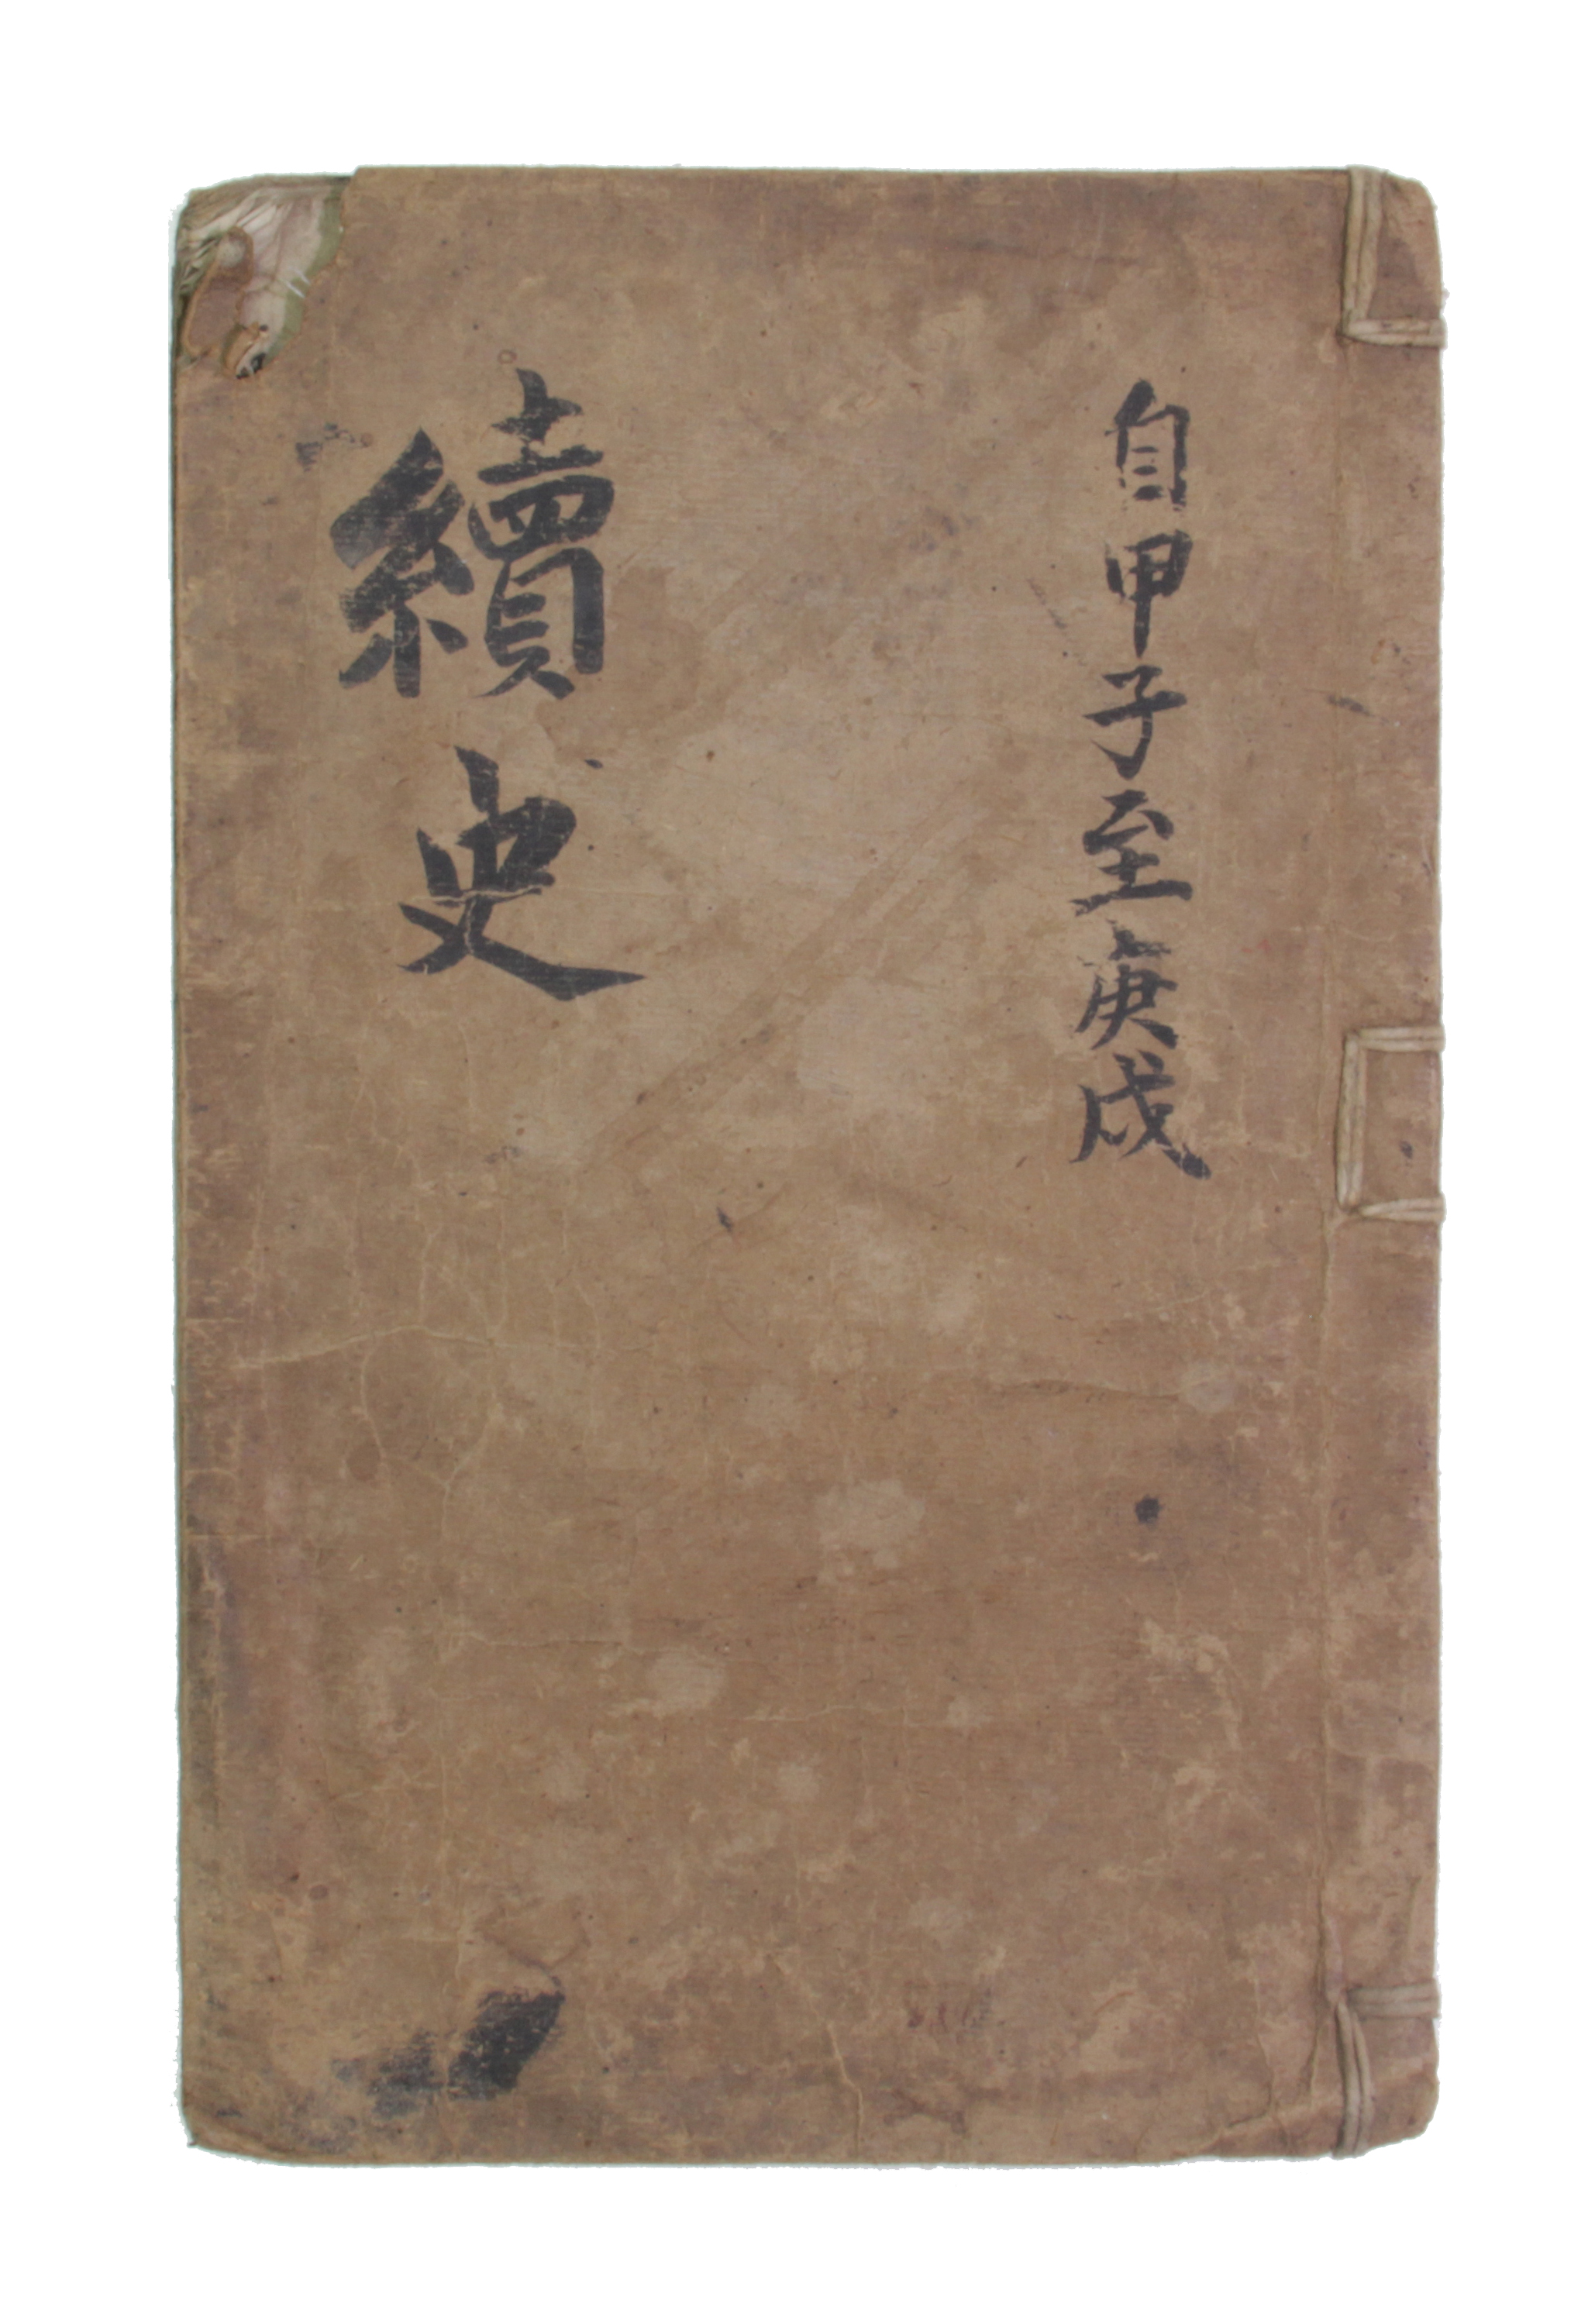 自甲子至庚戌
續史